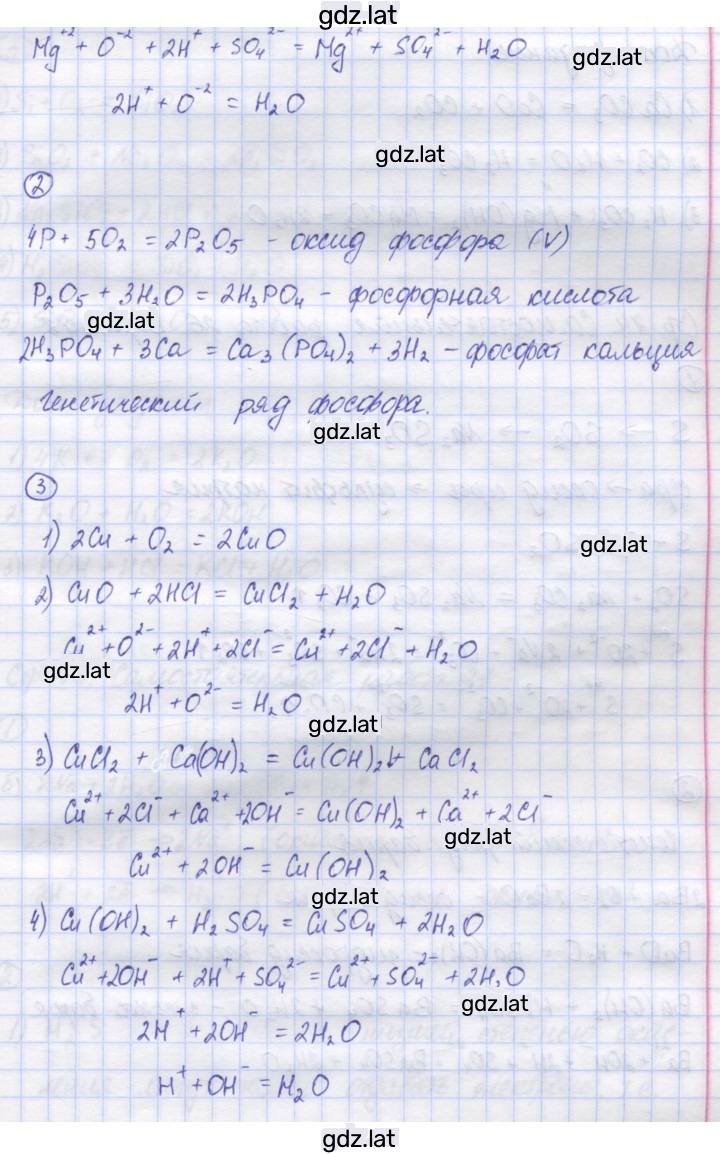 gdz.lat
Mg⁺² + O⁻² + 2H⁺ + SO₄²⁻ = Mg²⁺ + SO₄²⁻ + H₂O
gdz.lat
2H⁺ + O⁻² = H₂O
gdz.lat
2
4P + 5O₂ = 2P₂O₅ - оксид фосфора (V)
P₂O₅ + 3H₂O = 2H₃PO₄ - фосфорная кислота
gdz.lat
2H₃PO₄ + 3Ca = Ca₃(PO₄)₂ + 3H₂ - фосфат кальция
генетический ряд фосфора.
gdz.lat
3
1) 2Cu + O₂ = 2CuO
gdz.lat
2) CuO + 2HCl = CuCl₂ + H₂O
Cu²⁺ + O²⁻ + 2H⁺ + 2Cl⁻ = Cu²⁺ + 2Cl⁻ + H₂O
gdz.lat
2H⁺ + O²⁻ = H₂O
gdz.lat
3) CuCl₂ + Ca(OH)₂ = Cu(OH)₂↓ + CaCl₂
Cu²⁺ + 2Cl⁻ + Ca²⁺ + 2OH⁻ = Cu(OH)₂ + Ca²⁺ + 2Cl⁻
gdz.lat
Cu²⁺ + 2OH⁻ = Cu(OH)₂
gdz.lat
4) Cu(OH)₂ + H₂SO₄ = CuSO₄ + 2H₂O
Cu²⁺ + 2OH⁻ + 2H⁺ + SO₄²⁻ = Cu²⁺ + SO₄²⁻ + 2H₂O
gdz.lat
2H⁺ + 2OH⁻ = 2H₂O
H⁺ + OH⁻ = H₂O
gdz.lat